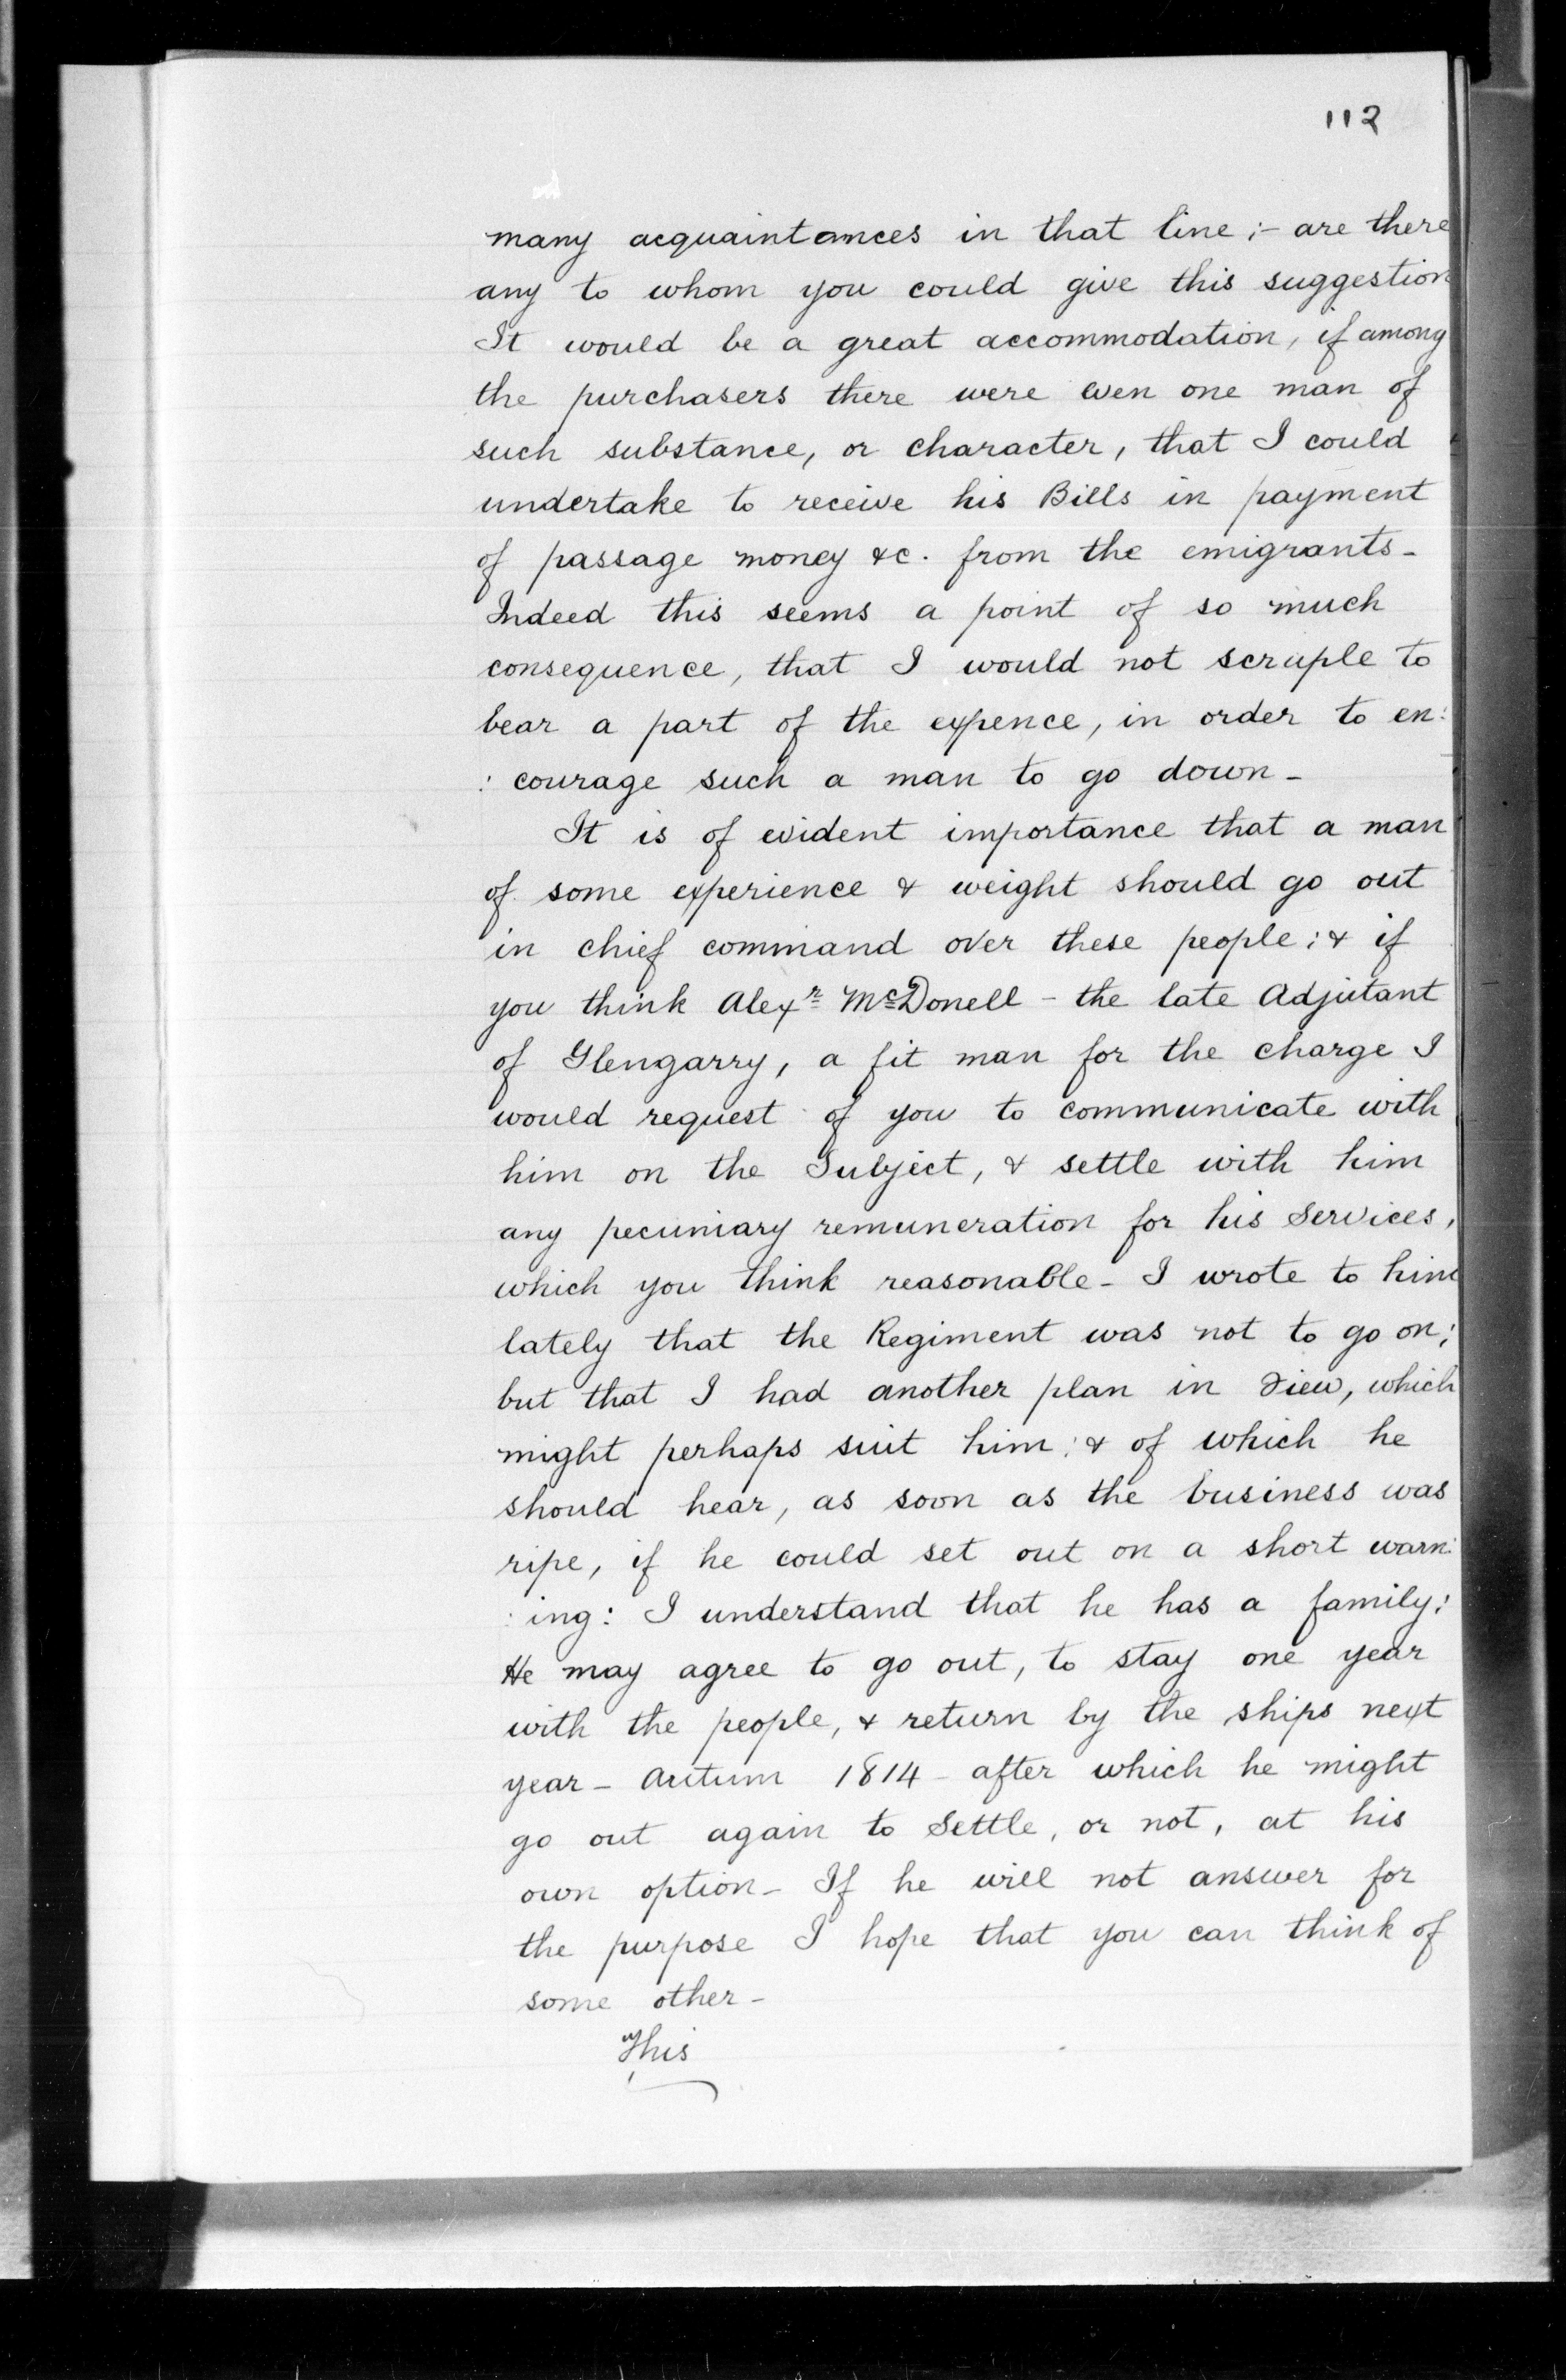 112
many acquaintances in that line;- are there
any to whom you could give this suggestion
It would be a great accommodation, if among
the purchasers there were even one man of
such substance, or character, that I could
undertake to receive his Bills in payment
of passage money &c. from the emigrants-
Indeed this seems a point of so much
consequence, that I would not scruple to
bear a part of the expence, in order to en:
: courage such a man to go down-
It is of evident importance that a man
of some experience & weight should go out
in chief command over these people; & if
you think Alexr McDonell - the late Adjutant
of Glengarry, a fit man for the charge I
would request of you to communicate with
him on the Subject, & settle with him
any pecuniary remuneration for his Services,
which you think reasonable- I wrote to him
lately that the Regiment was not to go on;
but that I had another plan in view, which
might perhaps suit him; & of which he
should hear, as soon as the business was
ripe, if he could set out on a short warn:
: ing: I understand that he has a family:
He may agree to go out, to stay one year
with the people, & return by the ships next
year- Autum 1814- after which he might
go out again to Settle, or not, at his
own option- If he will not answer for
the purpose I hope that you can think of
some other-
This